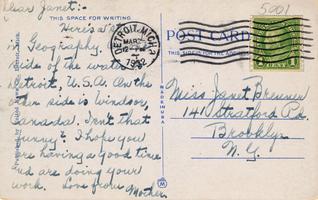 Dear Janet:
THIS SPACE FOR WRITING
Here's a
in Geography.
side of the water
Detroit, U.S.A. on the
other side is Windsor,
Canada. Isn't that
funny? I hope you
are having a good time
and are doing your
work. Love from Mother.
DETROIT, MICH.
MAR
1932
POST CARD
5001
Miss Janet Brenner
141 Stratford Rd.
Brooklyn
N.Y.
MADE IN U.S.A.